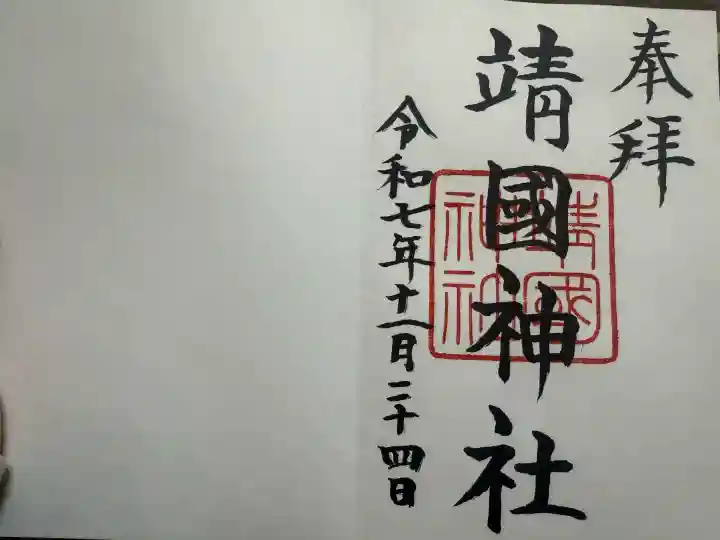 奉拜
靖國神社
靖國神社
令和七年十一月二十四日